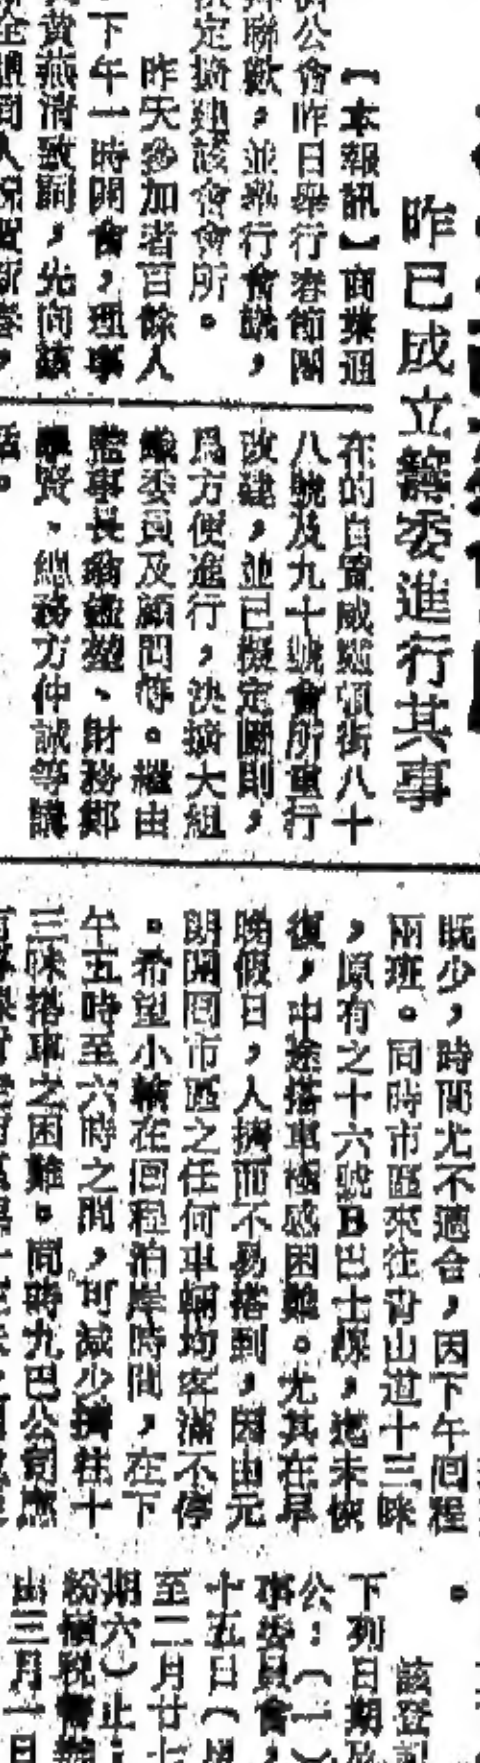 昨已成立籌委進行其事
【本報訊】商業通
公會昨日舉行春節團
聯歡，並舉行會議，
定擴建該會會所。
昨天參加者百餘人
下午一時開會，理事
黃燕清致詞，先向
在的自置威靈頓街八十
八號及九十號會所重行
改建，並已擬定圖則，
爲方便進行，決擴大組
織委員及顧問等。繼由
監事長、財務鄭
賢、總務方仲誠等講
話。
既少，時間尤不適合，因下午回程
兩班。同時市區來往青山道十三咪
，原有之十六號B巴士線，迄未恢
復，中途搭車極感困難。尤其在早
晚假日，人擠而不易搭到，因由元
朗開回市區之任何車輛均客滿不停
。希望小輪在回程泊岸時間，在下
午五時至六時之間，可減少擠往十
三咪搭車之困難。同時九巴公司應
。
該登
下列日期及
公：（一）
事委員會，
十五日（
至二月廿七
期六）止
由三月一日